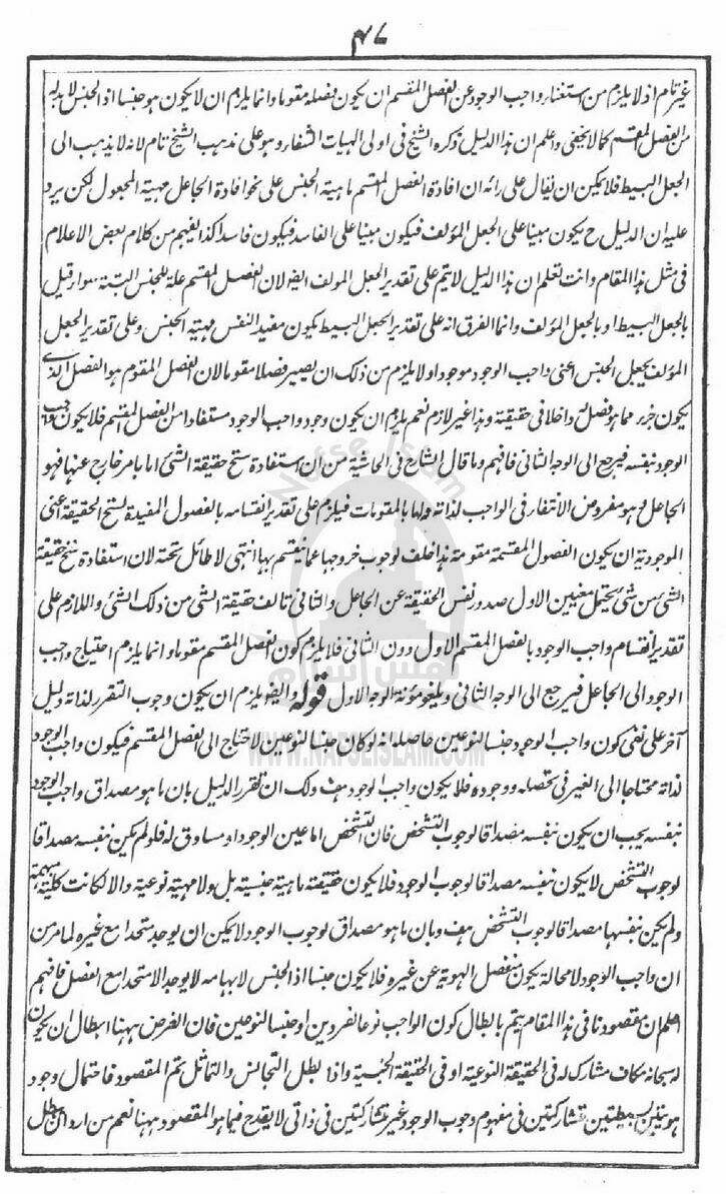 ٤٧
غير تام اذ لا يلزم من استغناء واجب الوجود عن الفصل المقسم ان يكون فصله مقوما وانما يلزم ان لا يكون هو جنسا اذ الجنس لا بد له
من الفصل المقسم كما لا يخفى واعلم ان هذا الدليل ذكره الشيخ في اولى الهيات الشفاء وهو على مذهب الشيخ تام لانه لا يذهب الى
الجعل البسيط فلا يمكن ان يقال على رائه ان افادة الفصل المقسم ماهية الجنس على نحو افادة الجاعل مهية المجعول لكن يرد
عليه ان الدليل ح يكون مبنيا على الجعل المؤلف فيكون مبنيا على الفاسد فيكون فاسدا كذا يفهم من كلام بعض الاعلام
في مثل هذا المقام وانت تعلم ان هذا الدليل لا يتم على تقدير الجعل المولف ايضا لان الفصل المقسم علة للجنس البتة سواء قيل
بالجعل البسيط او بالجعل المؤلف وانما الفرق انه على تقدير الجعل البسيط يكون مفيد النفس مهية الجنس وعلى تقدير الجعل
المؤلف يجعل الجنس اعنى واجب الوجود موجودا ولا يلزم من ذلك ان يصير فصلا مقوما لان الفصل المقوم هو الفصل الذى
يكون جزء مما هو فصل له داخلا في حقيقة وهذا غير لازم نعم يلزم ان يكون وجود واجب الوجود مستفادا من الفصل المقسم فلا يكون واجب
الوجود بنفسه فيرجع الى الوجه الثانى فافهم وما قال الشارح في الحاشية من ان استفادة سنخ حقيقة الشئ اما بامر خارج عنها فهو
الجاعل وهو مفروض الانتفاء في الواجب لذاته واما بالمقومات فيلزم على تقدير انقسامه بالفصول المفيدة لسنخ الحقيقة اعنى
الموجودية ان يكون الفصول المقسمة مقومة هذا خلف لوجوب خروجها عما ينقسم بها انتهى لا طائل تحته لان استفادة سنخ حقيقة
الشئ من شئ يحتمل معنيين الاول صدور نفس الحقيقة عن الجاعل والثانى تالف حقيقة الشئ من ذلك الشئ واللازم على
تقدير انقسام واجب الوجود بالفصل المقسم الاول دون الثانى فلا يلزم كون الفصل المقسم مقوما وانما يلزم احتياج واجب
الوجود الى الجاعل فيرجع الى الوجه الثانى ويلغو مؤنة الوجه الاول قوله وايضا يلزم ان يكون وجوب التقرر لذاته دليل
آخر على نفى كون واجب الوجود جنسا لنوعين حاصله انه لو كان جنسا لنوعين لاحتاج الى الفصل المقسم فيكون واجب الوجود
لذاته محتاجا الى الغير في تحصله ووجوده فلا يكون واجب الوجود هف ولك ان تقرر الدليل بان ما هو مصداق واجب الوجود
بنفسه يجب ان يكون نفسه مصداقا لوجوب التشخص فان التشخص اما عين الوجود او مساوق له فلو لم يكن نفسه مصداقا
لوجوب التشخص لا يكون نفسه مصداقا لوجوب الوجود فلا يكون حقيقة ماهية جنسية بل ولا مهية نوعية والا لكانت كلية مبهمة
ولم يكن نفسها مصداقا لوجوب التشخص هف وبان ما هو مصداق لوجوب الوجود لا يمكن ان يوجد متحدا مع غيره لما مر من
ان واجب الوجود لا محالة يكون منفصل الهوية عن غيره فلا يكون جنسا اذ الجنس لابهامه لا يوجد الا متحدا مع الفصل فافهم
اعلم ان مقصودنا في هذا المقام يتم بابطال كون الواجب نوعا لفردين او جنسا لنوعين فان الغرض ههنا ابطال ان يكون
له سبحانه مكاف مشارك له في الحقيقة النوعية او في الحقيقة الجنسية واذا بطل التجانس والتماثل يتم المقصود فاحتمال وجود
هويتين بسيطتين متشاركتين في مفهوم وجوب الوجود غير متشاركتين في ذاتى لا يقدح فيما هو المقصود ههنا نعم من اراد ان يبطل
Nafse Islam
نفس اسلام
WWW.NAFSEISLAM.COM